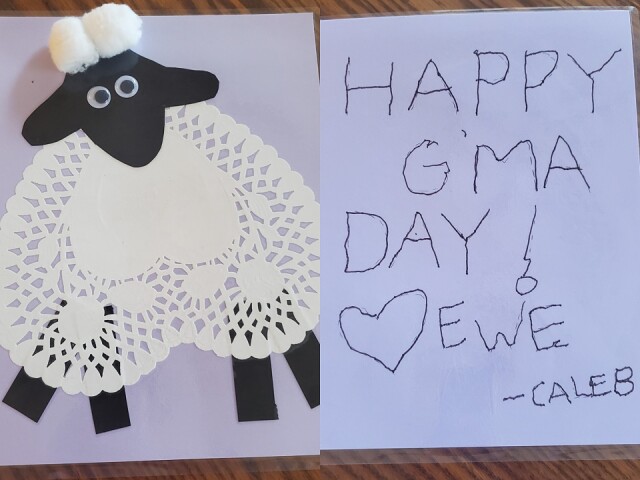 HAPPY
G'MA
DAY!
♡ EWE
-CALEB